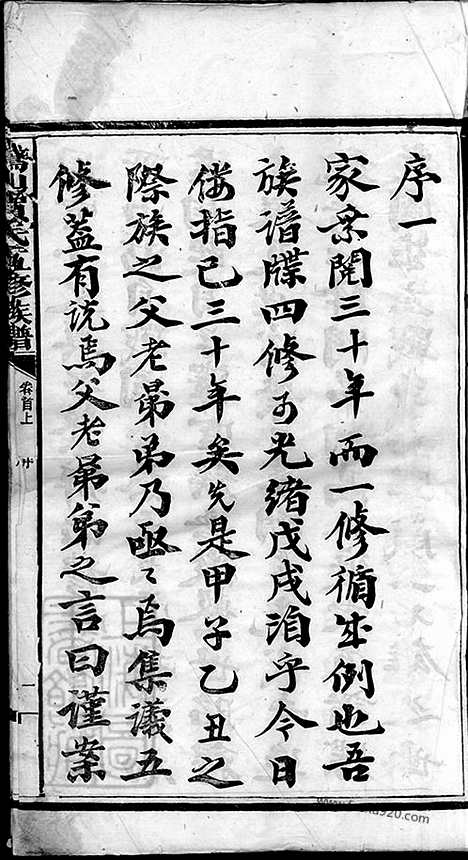 序一
家乘閱三十年而一修循成例也吾
族譜牒四修于光緒戊戌洎乎今日
僂指已三十年矣先是甲子乙丑之
際族之父老昆弟乃亟〻焉集議五
修蓋有說焉父老昆弟之言曰謹案
氏五修族譜
卷首上